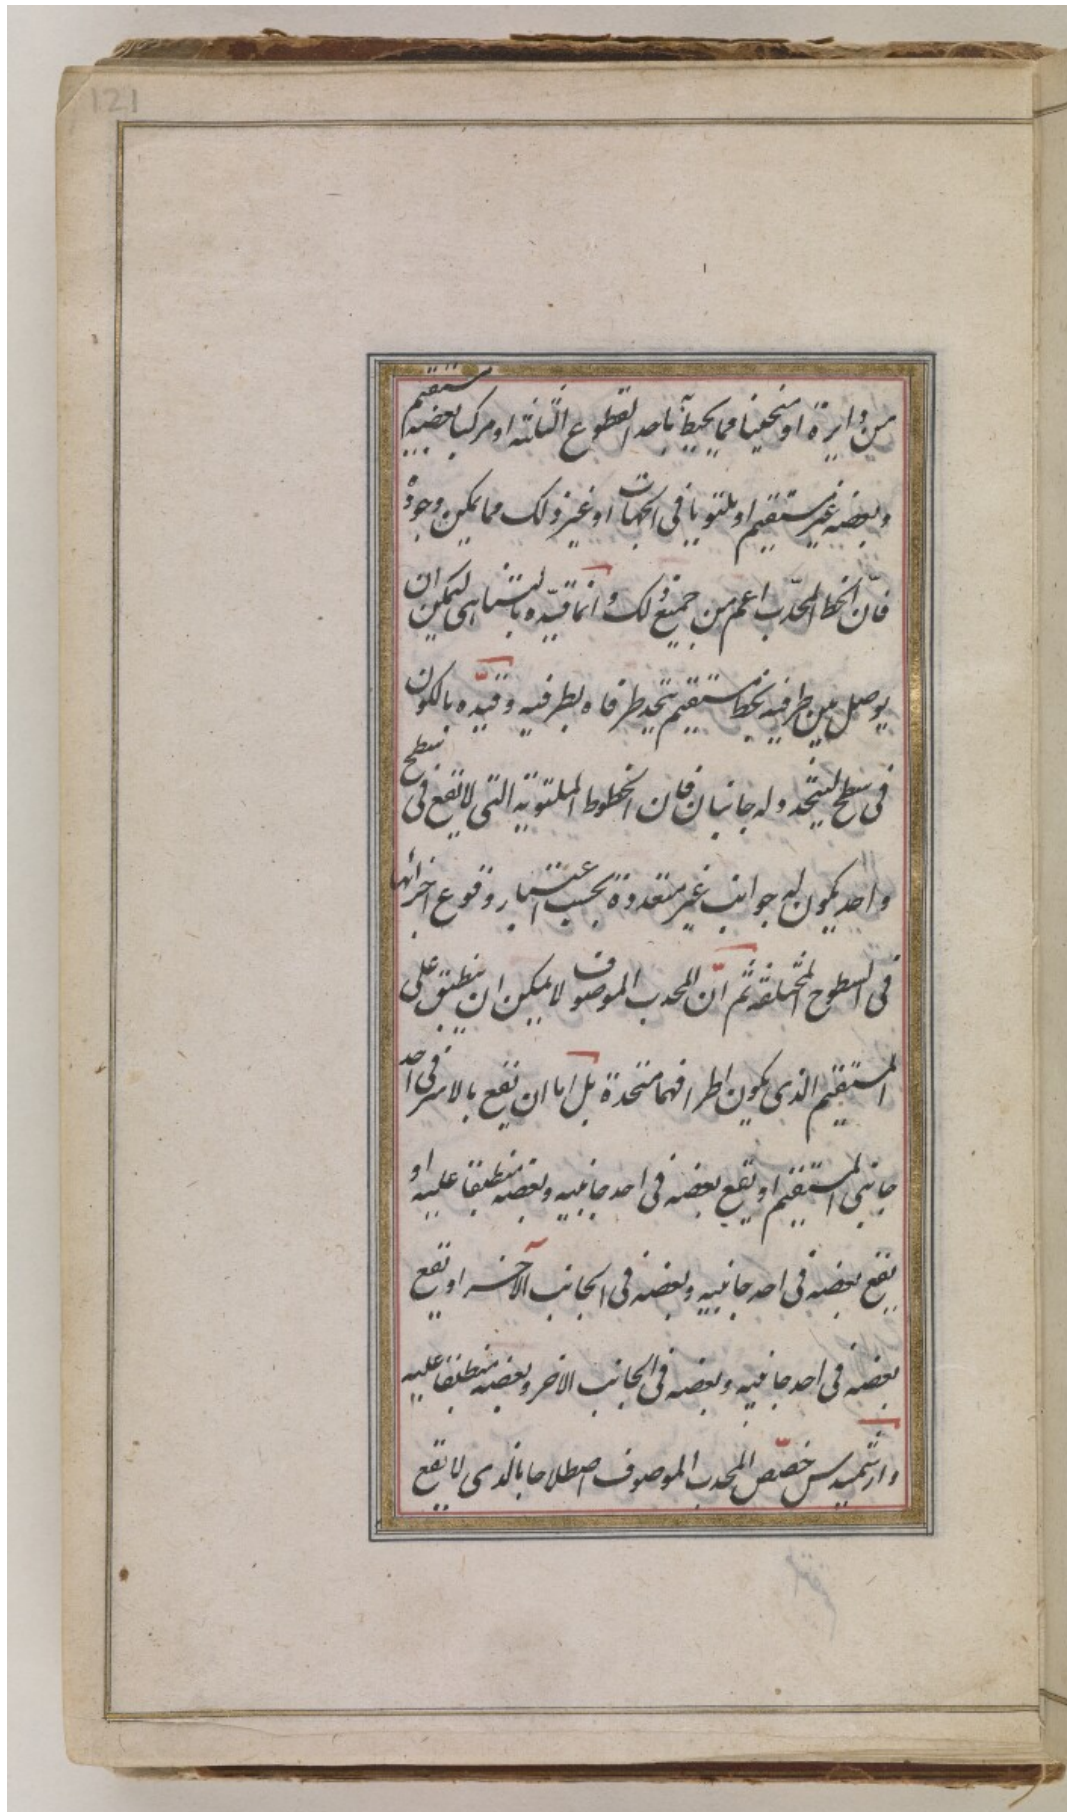 121
من دايرة او منحنيا مما يحيط باحد القطوع الثلثة او مركبا بعضه مستقيم
وبعضه غير مستقيم او ملتويا فى الجهات او غير ذلك مما يمكن وجوده
فانّ الخط المحدّب اعم من جميع ذلك وانما قيّده بالمتناهى ليمكن ان
يوصل بين طرفيه بخط مستقيم يتحد طرفاه بطرفيه وقيّده بالكون
فى سطح ليتحد وله جانبان فان الخطوط الملتوية التى لا تقع فى سطح
واحد يكون له جوانب غير متعددة بحسب اعتبار وقوع اجزائها
فى السطوح المختلفة ثم انّ المحدب الموصوف لا يمكن ان ينطبق على
المستقيم الذى يكون اطرافهما متحدة بل اما ان يقع بالاسر فى احد
جانبى المستقيم او يقع بعضه فى احد جانبيه وبعضه منطبقا عليه او
يقع بعضه فى احد جانبيه وبعضه فى الجانب الآخر او يقع
بعضه فى احد جانبيه وبعضه فى الجانب الاخر وبعضه منطبقا عليه
وارشميدس خصّص المحدب الموصوف اصطلاحا بالذى لا يقع